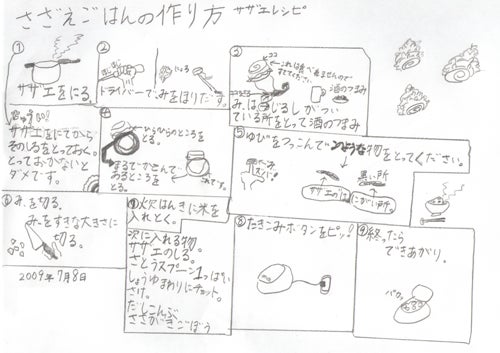 さざえごはんの作り方 サザエレシピ
①
サザエをにる
②
にょろ
ドライバーでみをほりだす。
③
ココ
←これは食べれませんので
すててください。
酒のつまみ
みは しるしがつい
ている所をとって酒のつまみ
サザエをにてから
そのしるをとっておく。
とっておかないと
ダメです。
④
ひらひらのところを
とる。
まるでかこんで
あるところを
とる。
これです。
⑤ ゆびをつっこんで
物をとってください。
黒い所
にがい所。
⑥ みを切る。
みをすきな大きさに
切る。
⑦ 炊はんきに米を
入れとく。
次に入れる物
サザエのしる。
さとうスプーン1っぱい
しょうゆまわりにチョット。
さけ。
だしこんぶ
ささがきごぼう
⑧ たきこみボタンをピッ!
⑨ 終ったら
できあがり。
パカ。
2009年7月8日